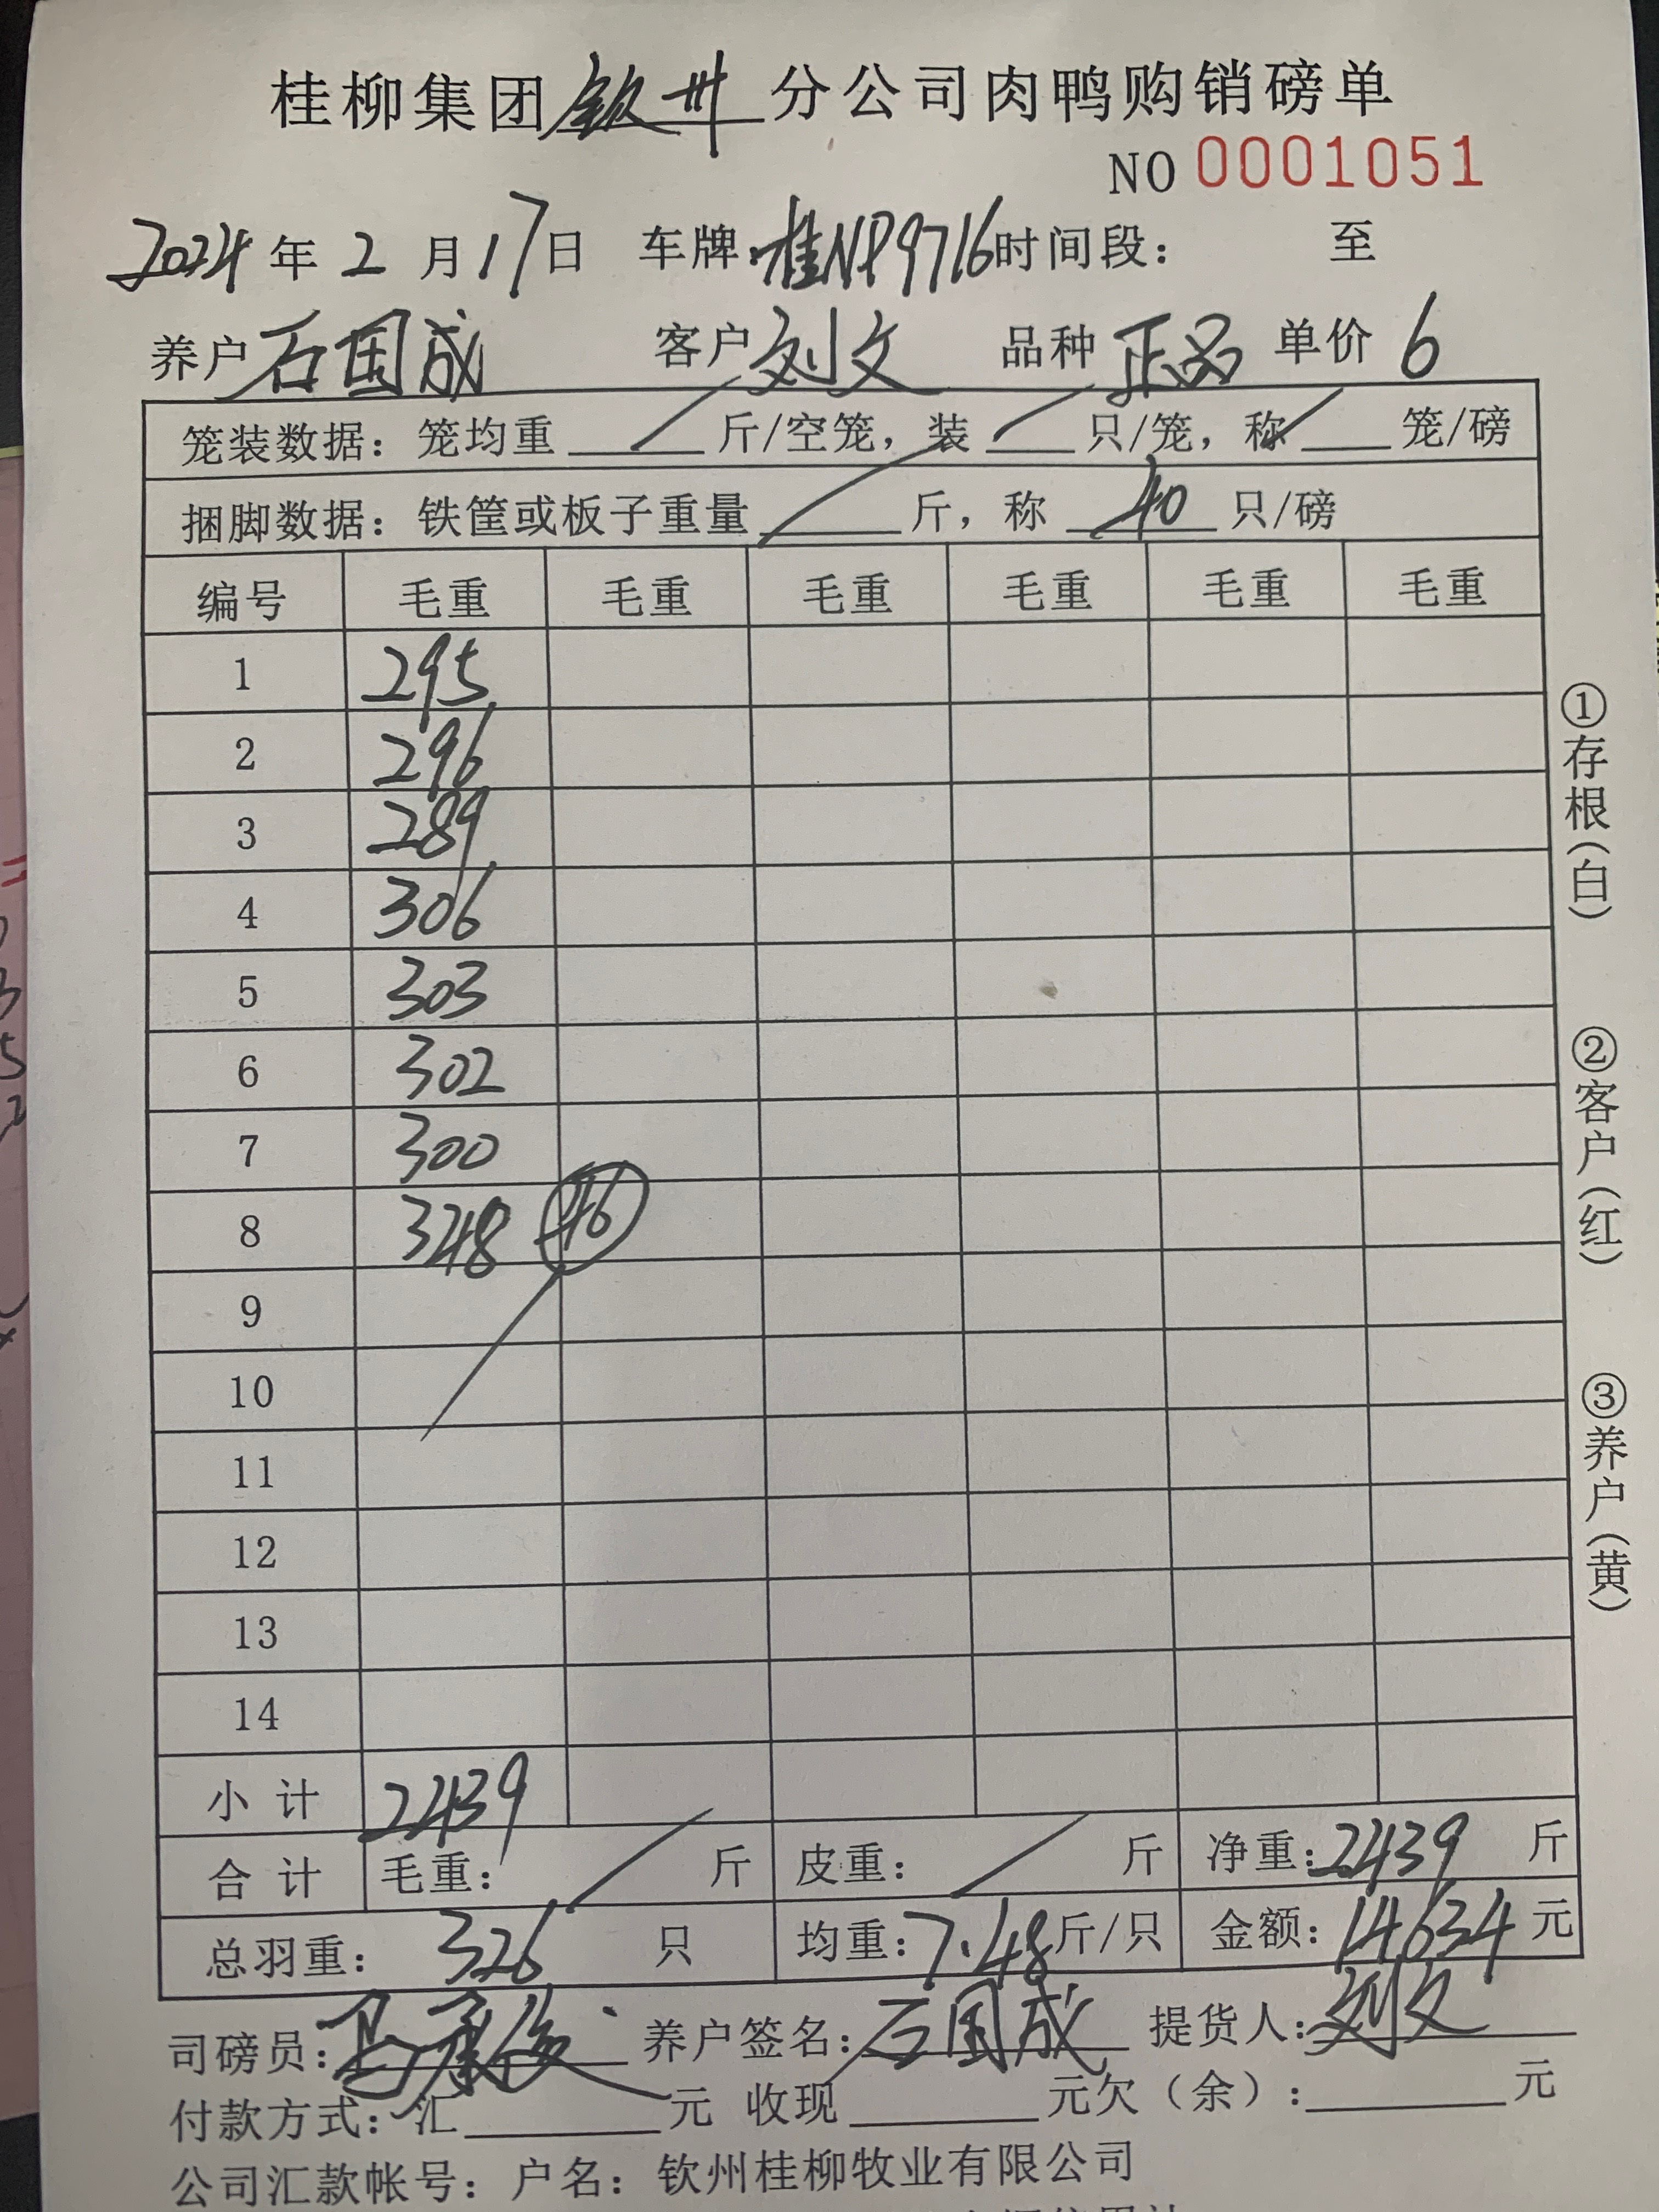 桂柳集团钦州分公司肉鸭购销磅单
NO 0001051
2024年2月17日 车牌:桂NP9716时间段: 至
养户石国成 客户刘文 品种正品 单价6
笼装数据:笼均重 斤/空笼,装 只/笼,称 笼/磅
捆脚数据:铁筐或板子重量 斤,称 40 只/磅
编号 毛重 毛重 毛重 毛重 毛重 毛重
1 295
2 296
3 289
4 306
5 303
6 302
7 300
8 348 46
9
10
11
12
13
14
小计 2439
合计 毛重: 斤 皮重: 斤 净重:2439 斤
总羽重: 326 只 均重:7.48斤/只 金额:14634元
司磅员: 养户签名:石国成 提货人:刘文
付款方式:汇 元 收现 元欠(余): 元
公司汇款帐号:户名:钦州桂柳牧业有限公司
①存根(白)
②客户(红)
③养户(黄)